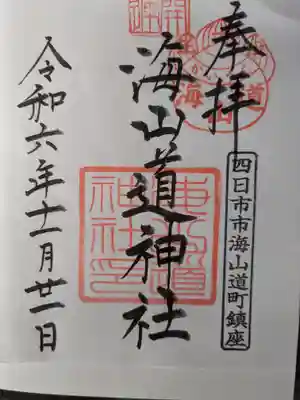 奉拝
四日市市海山道町鎮座
海山道神社
令和六年十一月廿一日
開運
海山道
神社印